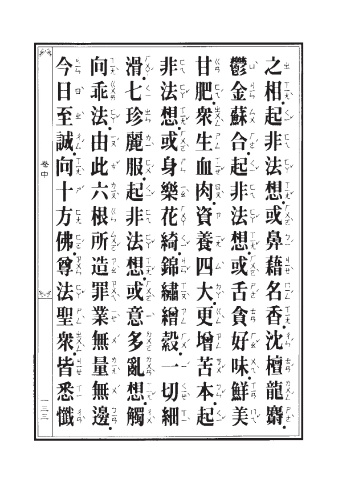 之相起非法想或鼻藉名香沈檀龍麝
鬱金蘇合起非法想或舌貪好味鮮美
甘肥衆生血肉資養四大更增苦本起
非法想或身樂花綺錦繡繒縠一切細
滑七珍麗服起非法想或意多亂想觸
向乖法由此六根所造罪業無量無邊
今日至誠向十方佛尊法聖衆皆悉懺
卷中
一三三